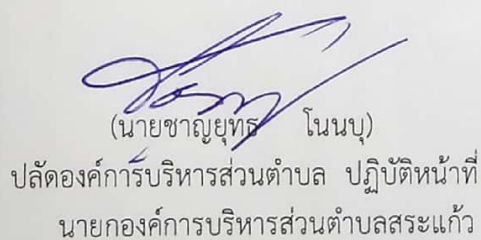 (นายชาญยุทธ โนนบุ)
ปลัดองค์การบริหารส่วนตำบล ปฏิบัติหน้าที่
นายกองค์การบริหารส่วนตำบลสระแก้ว